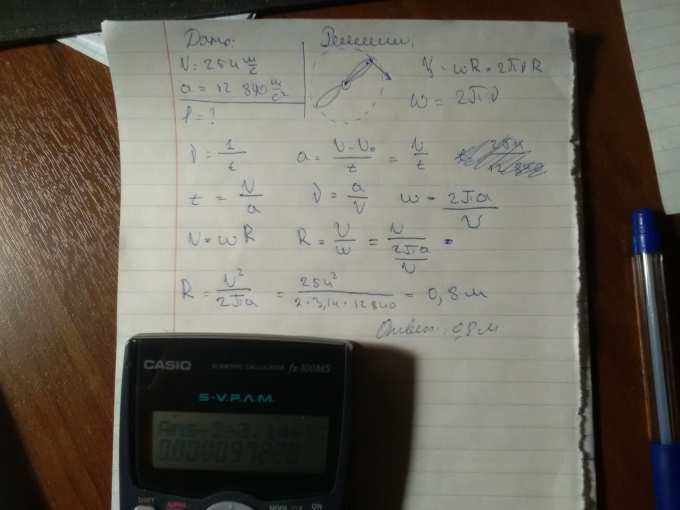 Дано: Решение.
V = 254 м/с
a = 12 840 м/с²
l = ?
V = ωR = 2πνR
ω = 2πν
ν = 1/t a = (V - V₀)/t = V/t
t = V/a ν = a/V ω = 2πa/V
V = ωR R = V/ω = V/(2πa/V) =
R = V²/2πa = 254²/(2·3,14·12840) = 0,8 м
Ответ: 0,8 м
CASIO SCIENTIFIC CALCULATOR fx-100MS
S-V.P.A.M.
SHIFT ALPHA MODE CLR ON